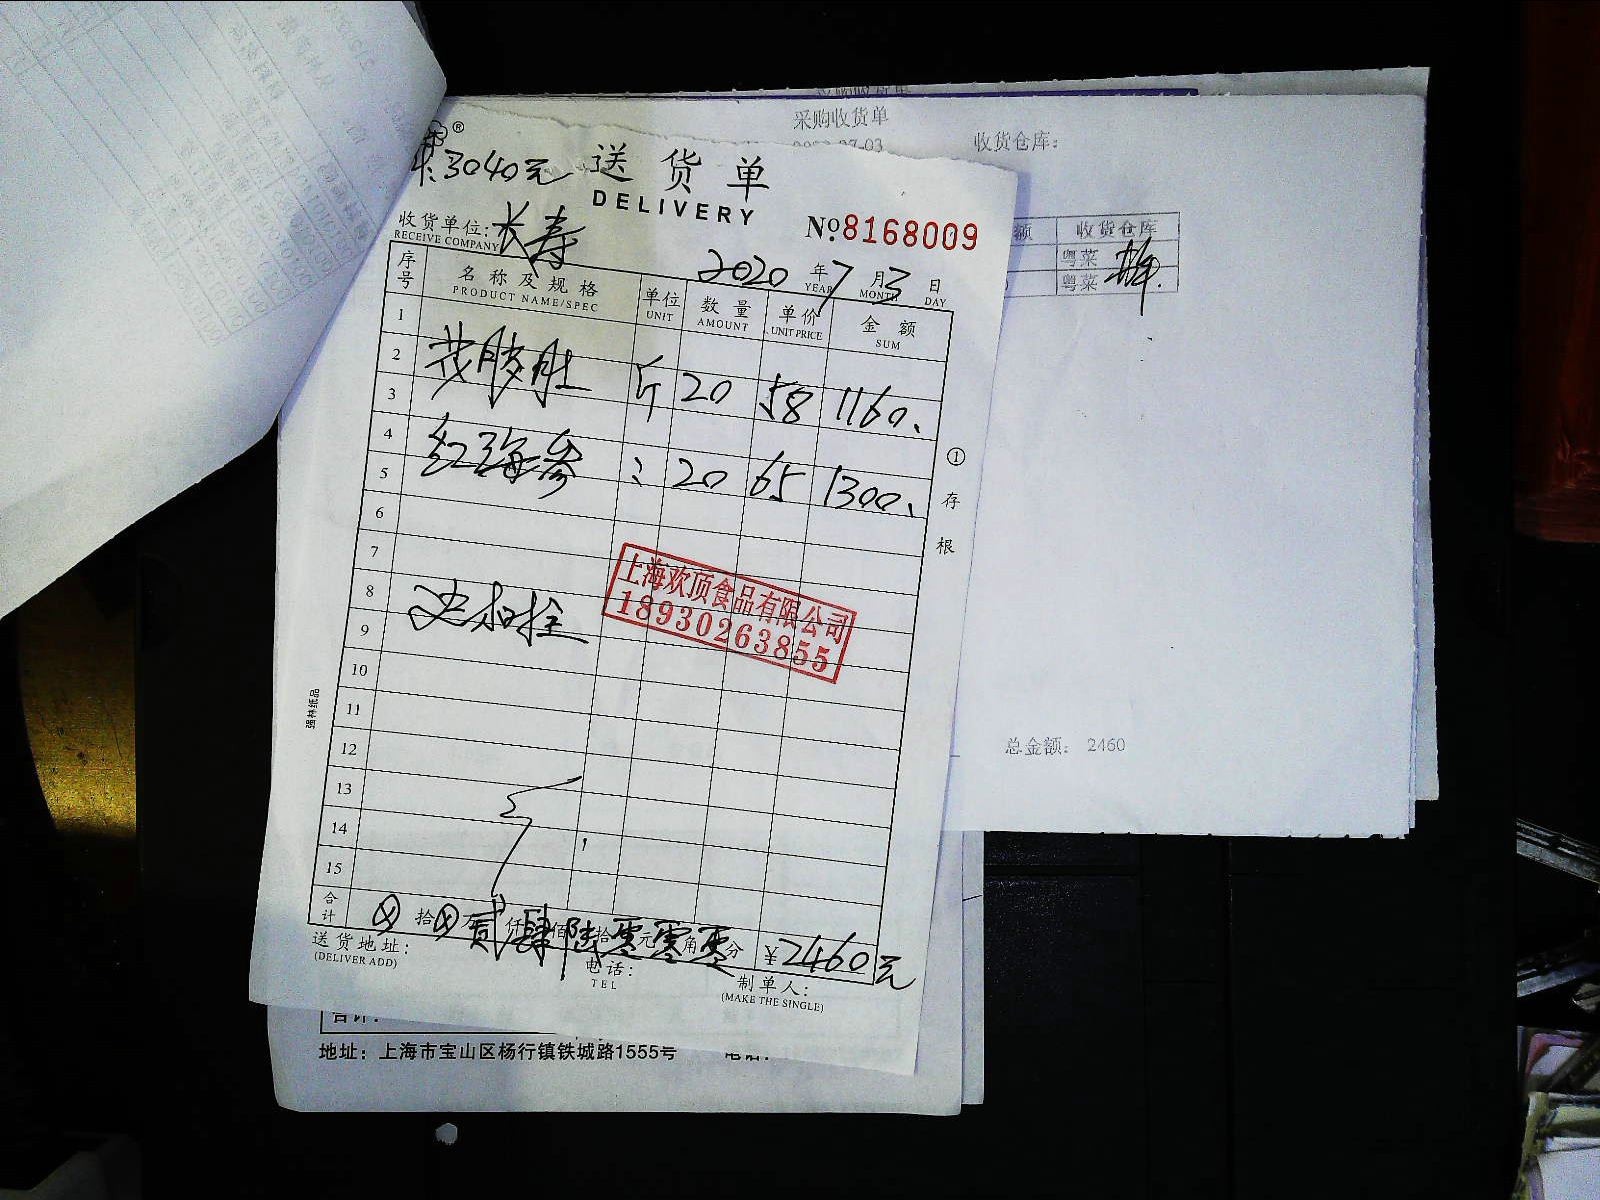 采购收货单
收货仓库:
3040元
送货单
DELIVERY
收货单位: 长寿
RECEIVE COMPANY
№8168009
2020年7月3日
YEAR MONTH DAY
额 收货仓库
粤菜
粤菜
序号 名称及规格 单位 数量 单价 金额
PRODUCT NAME/SPEC UNIT AMOUNT UNIT PRICE SUM
1
2 花胶肚 斤 20 58 1160.
3
4 红海参 : 20 65 1300.
5
6
7
8
9
10
11
12
13
14
15
①存根
上海欢顶食品有限公司
18930263855
强林纸品
总金额: 2460
合计 拾 万 贰仟肆佰陆拾零元零角零分 ¥2460元
送货地址:
(DELIVER ADD)
电话:
TEL
制单人:
(MAKE THE SINGLE)
合计:
地址: 上海市宝山区杨行镇铁城路1555号 电话: